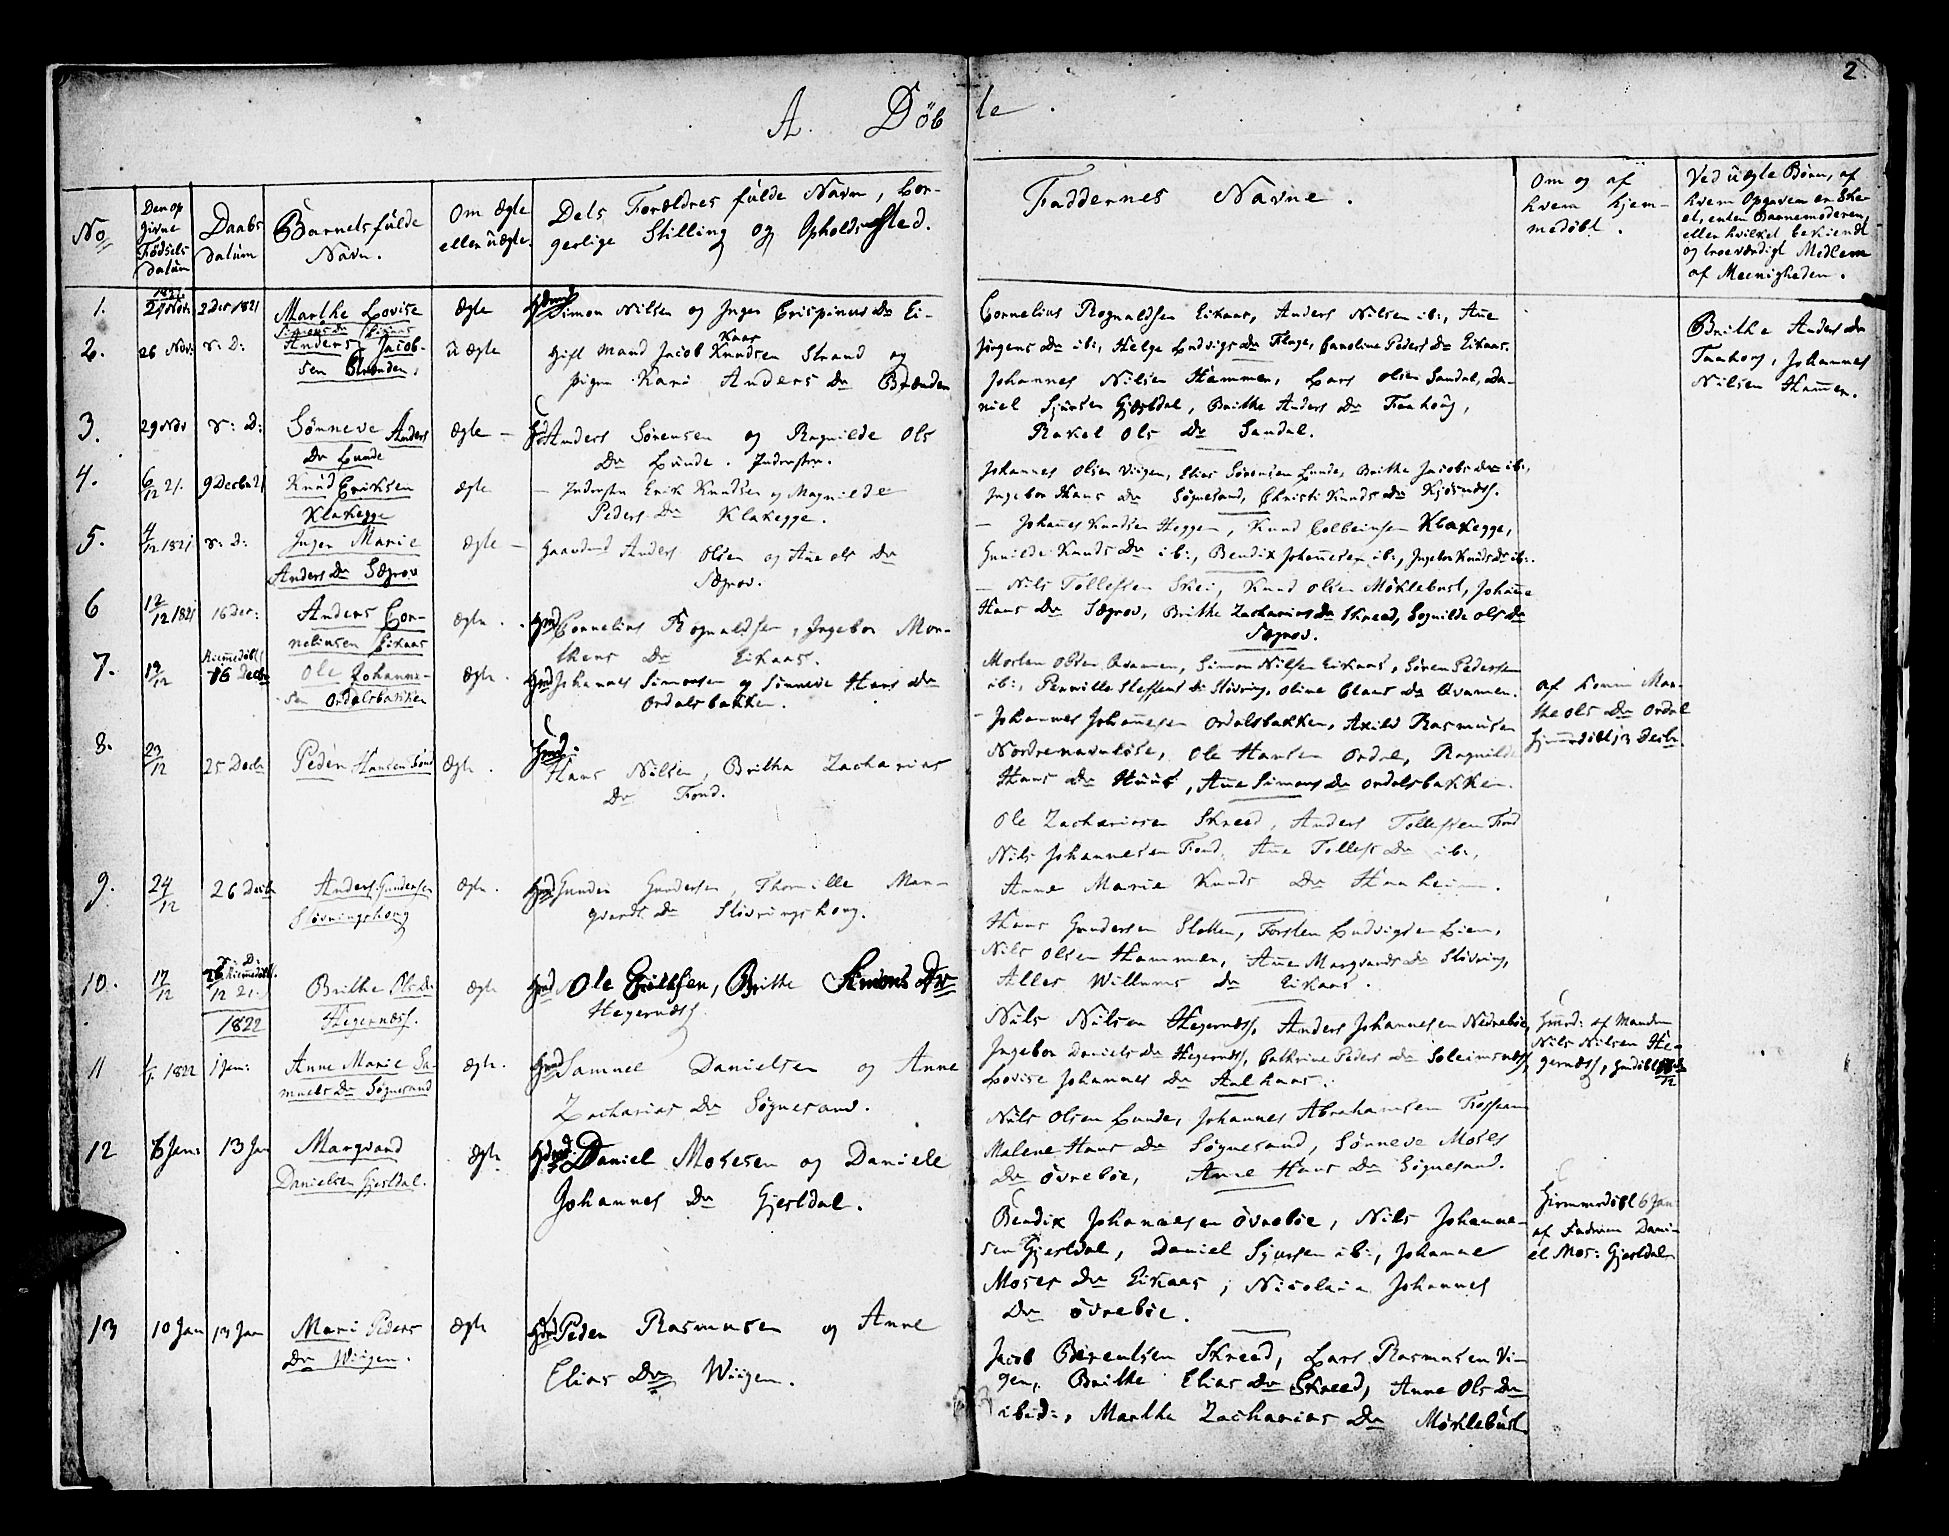 2
A. Døbte.
No
Den op
givne
Fødsels
datum
Daabs
datum
Barnets fulde
Navn.
Om Ægte
eller uægte.
Dets Forældres fulde Navn, Bor-
gerlige Stilling og Opholds Sted.
Faddernes Navne.
Om og af
hvem hjem-
medøbt.
Ved uægte Børn, af
hvem Opgaven er Ske-
et, enten Barnemoderen,
eller hvilket bekiendt
og troeværdigt Medlem
af Meenigheden.
1.
1821
27 Nov.
2 Der 1821
Marthe Lovise
Simons Dr Eikaas
Ægte
Simon Nilsen og Inger Crispinus Dr Ei-
kaas
Cornelius Rognaldsen Eikaas, Anders Nilsen ib:, Ane
Jørgens Dr ib:, Helge Ludvigs Dr Flage, Caroline Peders Dr Eikaas.
2.
26 Nov:
v: D:
Anders Jacob-
sen Brænden,
uægte
Gift Mand Jacob Knudsen Strand og
pigen Kari Anders Dr Brænden
Johannes Nilsen Hammer, Lars Olsen Sandal, Da-
niel Sjursen Gjesldal, Brithe Anders Dr Faahoug,
Rakel Ols Dr Sandal.
Brithe Anders Dr
Faahoug, Johannes
Nilsen Hammer.
3.
29 Nov
v: D:
Sønneve Anders
Dr Lunde
Ægte
Anders Sørensen og Ragnilde Ols
Dr Lunde. Inderster.
Johannes Olsen Viigen, Elias Sørensen Lunde, Brithe Jacobs Dr ib:,
Ingebor Hans Dr Søgnesand, Christi Knuds Dr Kjøsnæs.
4.
6/12 21.
9 Decbr 21
Knud Eriksen
Klakegge
Ægte
Inderster Erik Knudsen og Magnilde
Peders Dr Klakegge.
Johannes Knudsen Heggen, Knud Colbeinsen Klakegge,
Gunilde Knuds Dr ib:, Bendix Johannesen ib:, Ingebor Knuds Dr ib:.
5.
4/12 1821
v: D:
Inger Marie
Anders Dr Sægrov
Ægte
Gaardmd Anders Olsen og Ane Ols Dr
Sægrov.
Nils Tollefsen Skei, Knud Olsen Møklebust, Johanne
Hans Dr Sægrov, Brithe Zacharias Dr Skreed, Sognilde Ols Dr
Sægrov.
6
12/12 1821
16 Der:
Anders Cor-
neliusen Eikaas
Ægte
Gmd Cornelius Rognaldsen, Ingebor Mor-
thens Dr Eikaas.
Morten Olsen Qvamen, Simon Nilsen Eikaas, Søren Pedersen
ib:, Pernille Steffens Dr Støvring, Oline Claus Dr Qvamen.
7.
12/12
Hiemedøbt
16 Decbr
Ole Johanne-
sen Ordalsbakken
Ægte
Gmd Johannes Simonsen og Sinneve Hans Dr
Ordalsbakken.
Johannes Johannesen Ordalsbakken, Axild Rasmusen
Nordrenavnløse, Ole Hansen Ordal, Ragnilde
Hans Dr Huus, Ane Simons Dr Ordalsbakken.
af Konen Mar-
the Ols Dr Ordal
hjemmedøbt 13 Decbr.
8.
23/12
25 Decbr
Peder Hansen Fond
Ægte.
Gmd:
Hans Nilsen, Britha Zacharias
Dr Fond.
Ole Zachariasen Skreed, Anders Tollefsen Fond
Nils Johannesen Fond, Ane Tollefs Dr ib:,
Anne Marie Knuds Dr Haaheim.
9.
24/12
26 Decbr
Anders Gundersen
Støvringshoug
Ægte.
Gmd Gunder Gundersen, Thomille Mar-
qvards Dr Støvringshoug.
Hans Gundersen Slatten, Torsten Ludvigsen Lien,
Nils Olsen Hammer, Ane Marqvards Dr Støvring,
Alles Willums Dr Eikaas.
10.
17/12
v: D:
Hiemedøbt.
26/12 21.
Brithe Ols Dr
Hegernæss.
Ægte
Gmd Ole Erithsen, Brithe Simons Dr
Hegernæss
Nils Nilsen Hegernæss, Anders Johannesen Nedrebøe,
Ingebor Daniels Dr Hegernæss, Cathrine Peders Dr Soleimsnæss,
Lovise Johannes Dr Aalhaas.
Gmed: af Manden
Nils Nilsen He-
gernæss,
1822
11
1/1 1822
1 Jan:
Anne Marie Sa-
muels Dr Søgnesand
Ægte.
Gmd Samuel Danielsen og Anne
Zacharias Dr Søgnesand.
Nils Olsen Lunde, Johannes Abrahamsen Fossheim
Malene Hans Dr Søgnesand, Sønneve Moses
Dr Øvrebøe, Anne Hans Dr Søgnesand.
12
6 Jan:
13 Jan
Marqvard
Danielsen Gjesldal.
Ægte
Gdmd: Daniel Mosesen og Daniele
Johannes Dr Gjesldal.
Bendix Johannesen Øvrebøe, Nils Johanne-
sen Gjesldal, Daniel Sjursen ib:, Johanne
Moses Dr Eikaas, Nicolaia Johannes
Dr Øvrebøe.
Hiemmedøbt 6 Jan
af Faderen Dani-
el Mos: Gjesldal
13
10 Jan
13 Jan
Mari Peders
Dr Wiigen.
Ægte
Gmd Peder Rasmusen og Anne
Elias Dr Wiigen.
Jacob Berentsen Skreed, Lars Rasmusen Vi-
gen, Brithe Elias Dr Skreed, Anne Ols Dr
ibid:, Marthe Zacharias Dr Møklebust